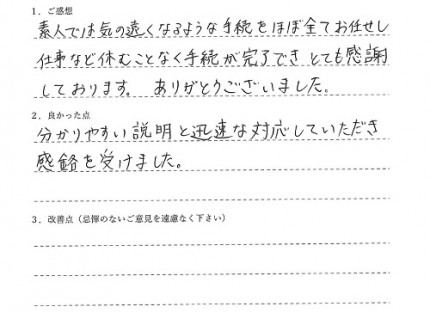 1．ご感想
素人では気の遠くなるような手続をほぼ全てお任せし
仕事など休むことなく手続が完了でき とても感謝
しております。 ありがとうございました。
2．良かった点
分かりやすい説明と迅速な対応していただき
感銘を受けました。
3．改善点（忌憚のないご意見を遠慮なく下さい）